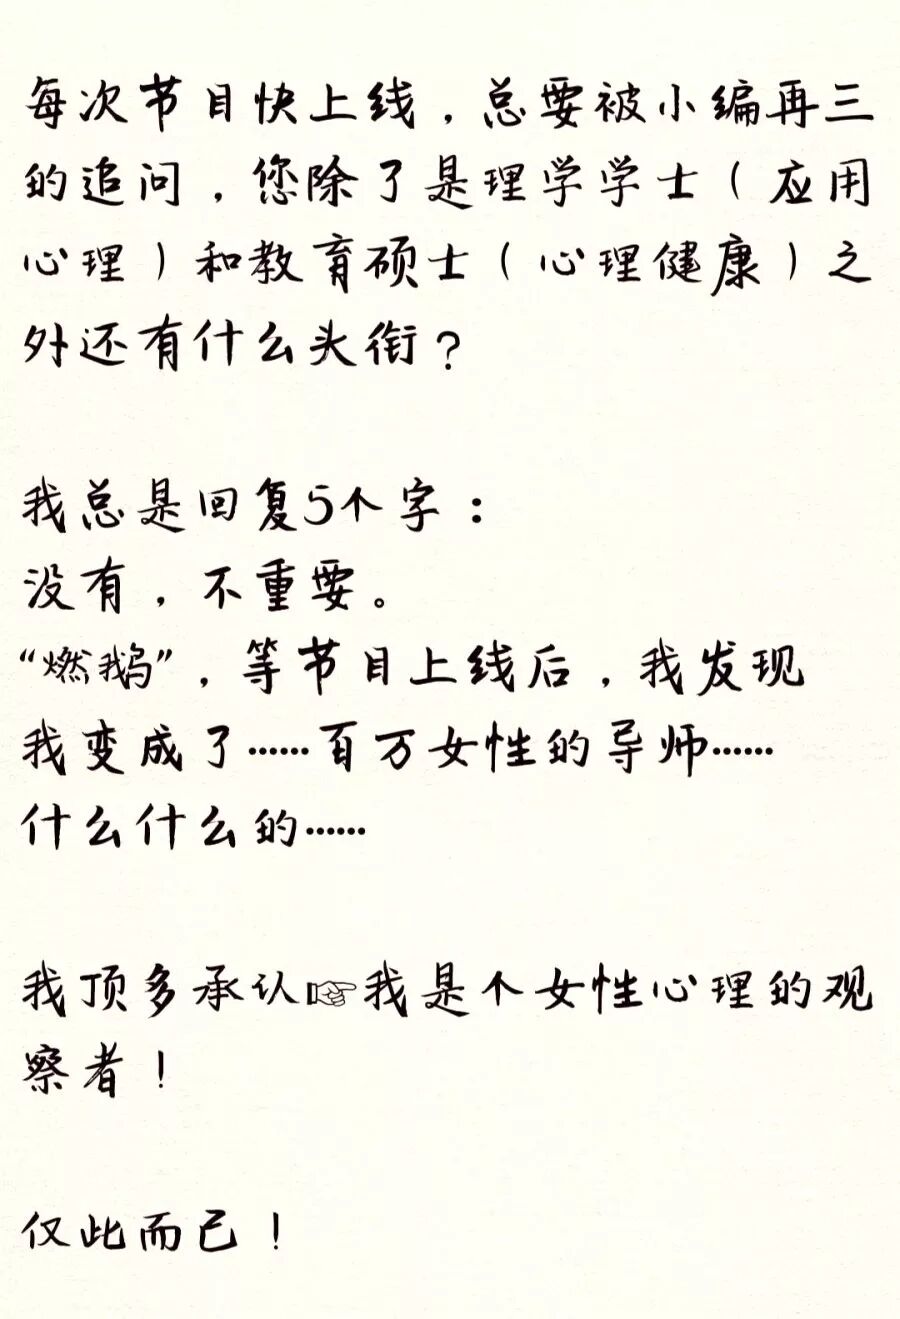 每次节目快上线，总要被小编再三
的追问，您除了是理学学士（应用
心理）和教育硕士（心理健康）之
外还有什么头衔？
我总是回复5个字：
没有，不重要。
“燃鹅”，等节目上线后，我发现
我变成了……百万女性的导师……
什么什么的……
我顶多承认☞我是个女性心理的观
察者！
仅此而已！